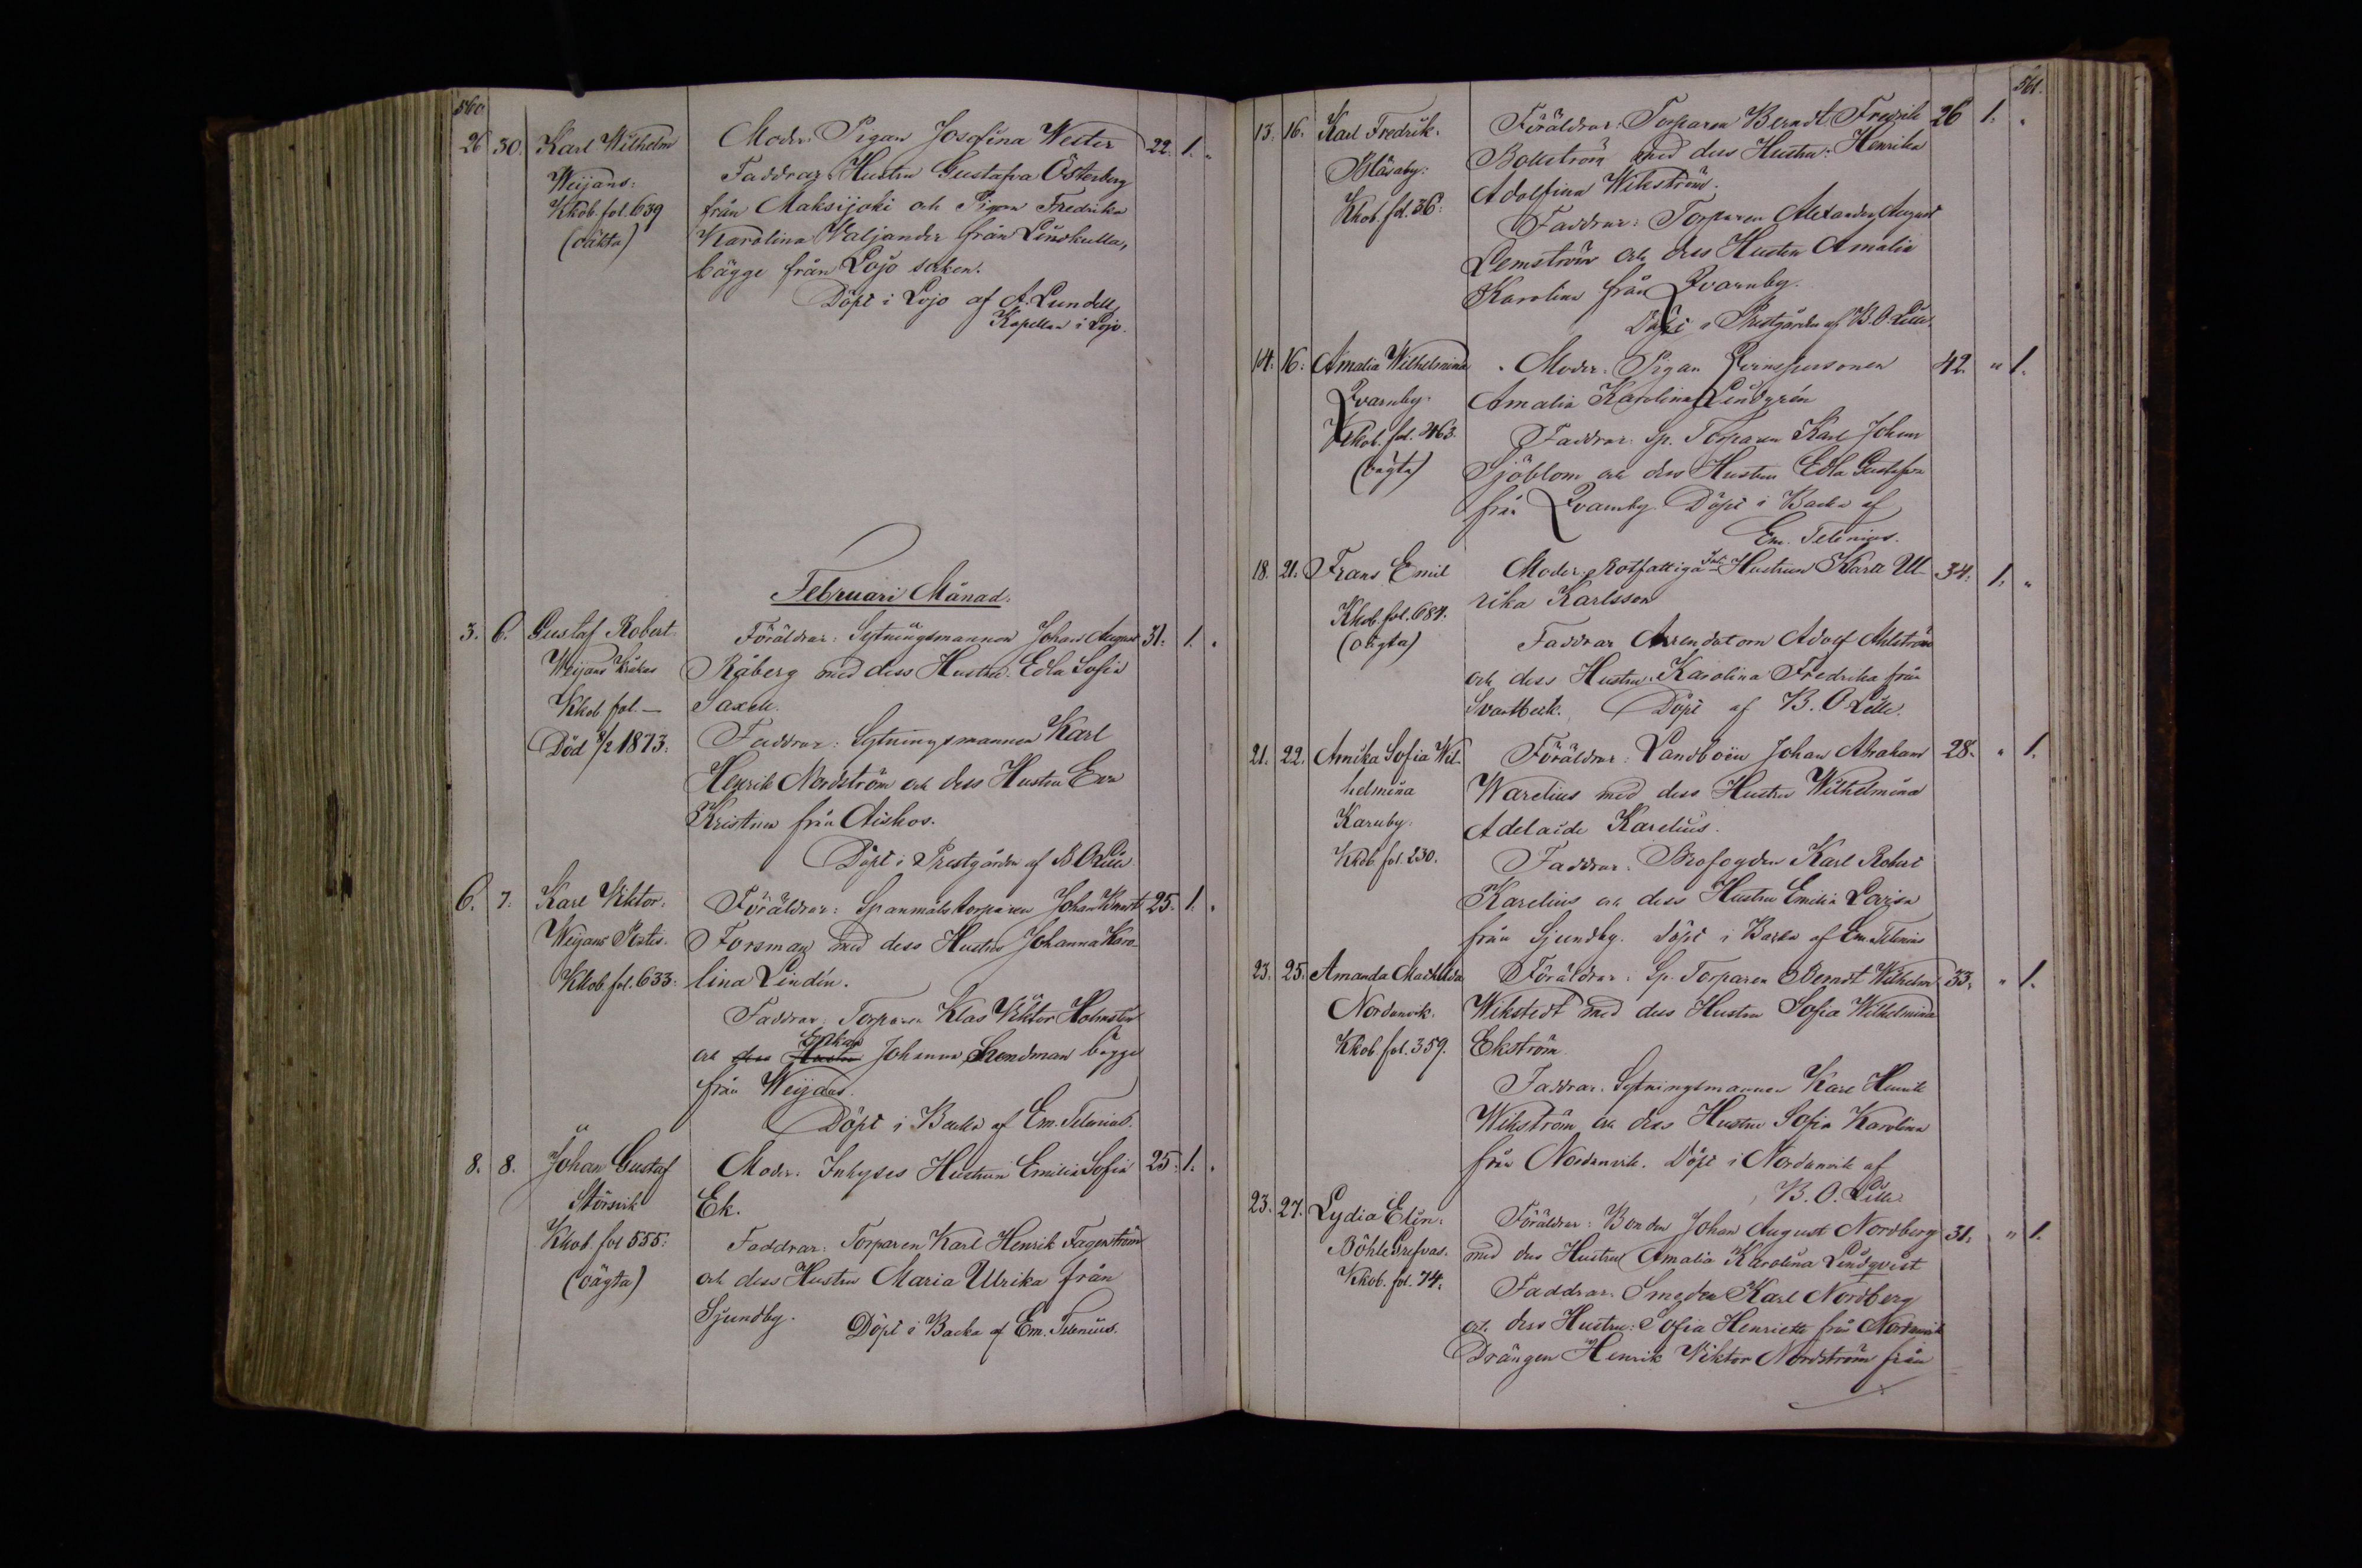 560
26 30. Karl Wilhelm Moder: Pigan Josefina Wester 22. 1. "
Weijans: Faddrar: Hustru Gustafva Österberg
Kkob. fol. 639 från Maksijoki och Pigan Fredrika
(oäkta) Karolina Valjander från Lindkulla,
bägge från Lojo socken.
Döpt i Lojo af A. Lundell,
Kapellan i Lojo.
Februari Månad.
3. 6. Gustaf Robert. Föräldrar: Sytningsmannen Johan August 31. 1. "
Weijans Råberg med dess Hustru: Edla Sofia
Kkob fol. — Saxell.
Död 8/2 1873. Faddrar: Sytningsmannen Karl
Henrik Nordström och dess Hustru Eva
Kristina från Aiskos.
Döpt i Prestgården af B. O. Lille.
6. 7. Karl Viktor. Föräldrar: Spanmålstorparen Johan 25. 1. "
Weijans Forsman med dess Hustru Johanna Karo-
Kkob. fol. 633. lina Lindén.
Faddrar: Torparen Klas Viktor Holmstén
och dess Hustru Enkan Johanna Sundman bägge
från Weijans.
Döpt i Backa af Em. Telenius.
8. 8. Johan Gustaf Moder: Inhyses Hustrun Emilia Sofia 25. 1. "
Störsvik Ek.
Kkob. fol 555. Faddrar: Torparen Karl Henrik Fagerström
(oägta) och dess Hustru Maria Ulrika från
Sjundby. Döpt i Backa af Em. Telenius.
561.
13. 16. Karl Fredrik. Föräldrar: Torparen Berndt Fredrik 26 1. "
Blåsaby: Bollström med dess Hustru: Henrika
Kkob. fol. 36. Adolfina Wikström.
Faddrar: Torparen Alexander August
Lemström och dess Hustru Amalia
Karolina från Qvarnby.
Döpt i Prestgården af B. O. Lille.
14. 16. Amalia Wilhelmina Moder: Pigan Qvinspersonen 42. " 1.
Qvarnby. Amalia Karolina Lindgrén
Kkob. fol. 463. Faddrar: Sp. Torparen Karl Johan
(oägta) Sjöblom och dess Hustru Edla Gustafva
från Qvarnby. Döpt i Backa af
Em. Telenius.
18. 21. Frans Emil Moder: Rotfattiga Inh. Hustrun Karl Ul- 34. 1. "
Kkob. fol. 684. rika Karlsson
(oägta) Faddrar Arrendatorn Adolf Ahlström
och dess Hustru: Karolina Fredrika från
Svartbeck. Döpt af B. O. Lille.
21. 22. Amika Sofia Wil- Föräldrar: Landboen Johan Abraham 28. " 1.
helmina Warelius med dess Hustru Wilhelmina
Karuby. Adelaide Karelius.
Kkob. fol. 230. Faddrar: Brofogden Karl Robert
Karelius och dess Hustru Emilia Lovisa
från Sjundby. Döpt i Backa af Em. Telenius
23. 25. Amanda Mathilda Föräldrar: Sp. Torparen Berndt Wilhelm 33. " 1.
Nordanvik. Wikstedt med dess Hustru Sofia Wilhelmina
Kkob. fol. 359. Ekström.
Faddrar: Sytningsmannen Karl Henrik
Wikström och dess Hustru Sofia Karolina
från Nordanvik. Döpt i Nordanvik af
B. O. Lille.
23. 27. Lydia Elin. Föräldrar: Bonden Johan August Nordberg 31. " 1.
Böhle Grefvas. med dess Hustru Amalia Karolina Lindqvist
Kkob. fol. 74. Faddrar: Smeden Karl Nordberg
och dess Hustru: Sofia Henriette från Nordanvik
Drängen Henrik Viktor Nordström från